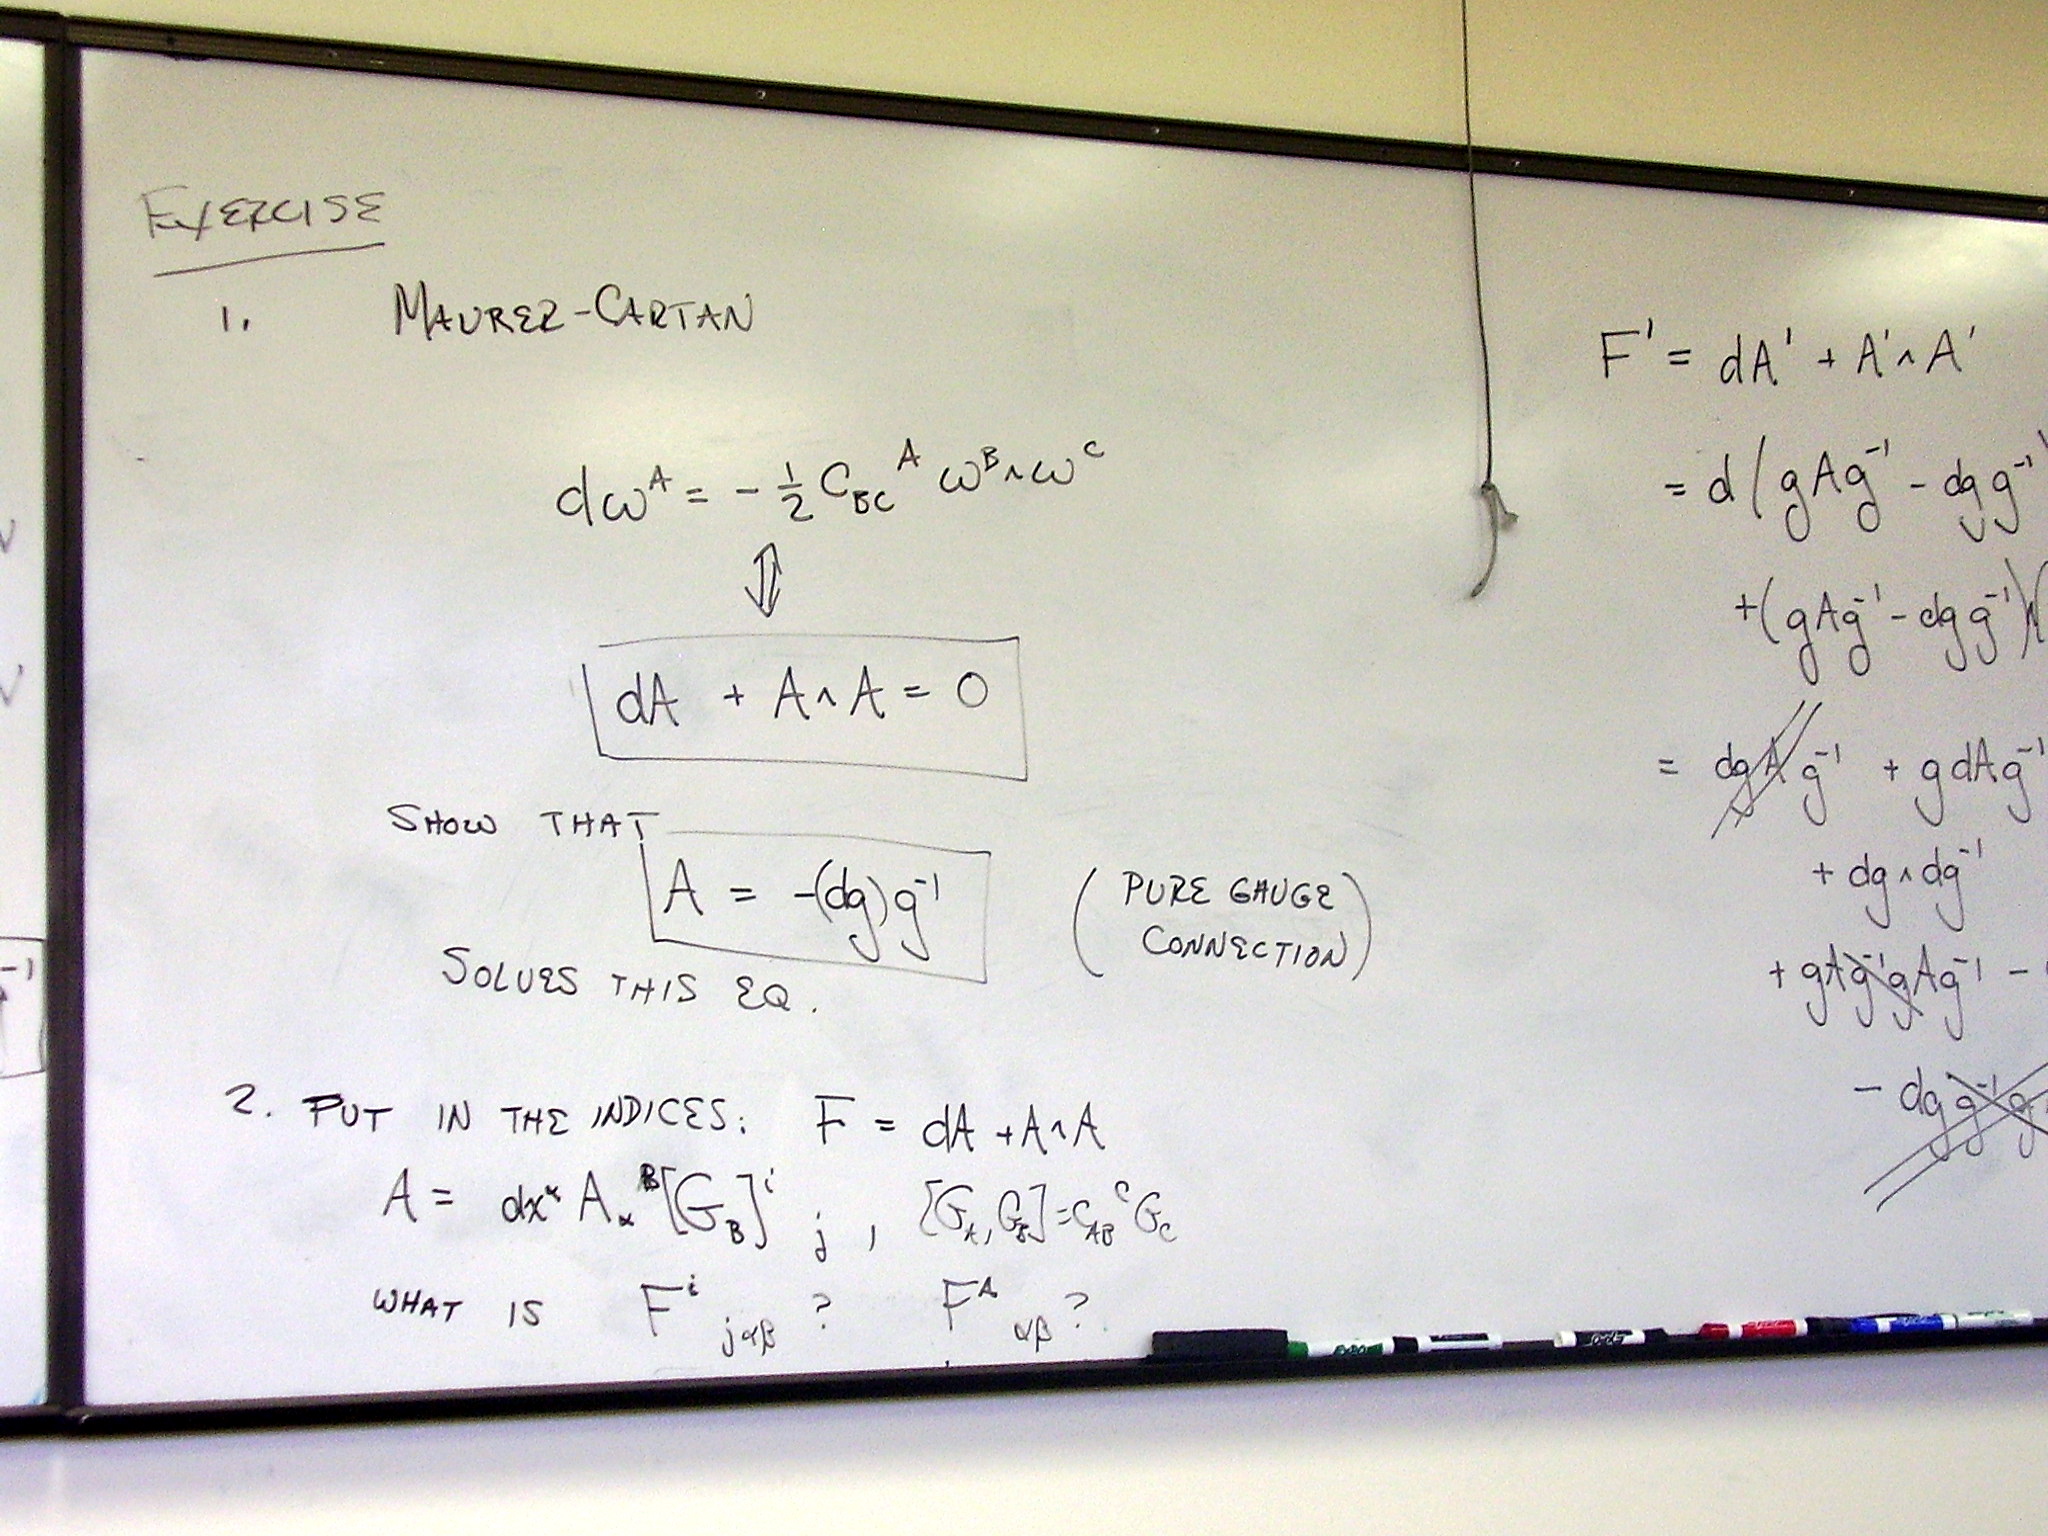 EXERCISE
1. MAURER-CARTAN
dω^A = -½ C_BC^A ω^B ∧ ω^C
⇕
dA + A∧A = 0
SHOW THAT
A = -(dg)g⁻¹
( PURE GAUGE
CONNECTION )
SOLVES THIS EQ.
2. PUT IN THE INDICES: F = dA + A∧A
A = dx^α A_α^B [G_B]^i_j , [G_A, G_B] = C_AB^C G_C
WHAT IS F^i_jαβ ? F^A_αβ ?
F' = dA' + A'∧A'
= d(gAg⁻¹ - dg g⁻¹)
+(gAg⁻¹ - dg g⁻¹)∧(
= dgAg⁻¹ + gdAg⁻¹
+ dg∧dg⁻¹
+ gAg⁻¹gAg⁻¹ -
- dg g⁻¹g